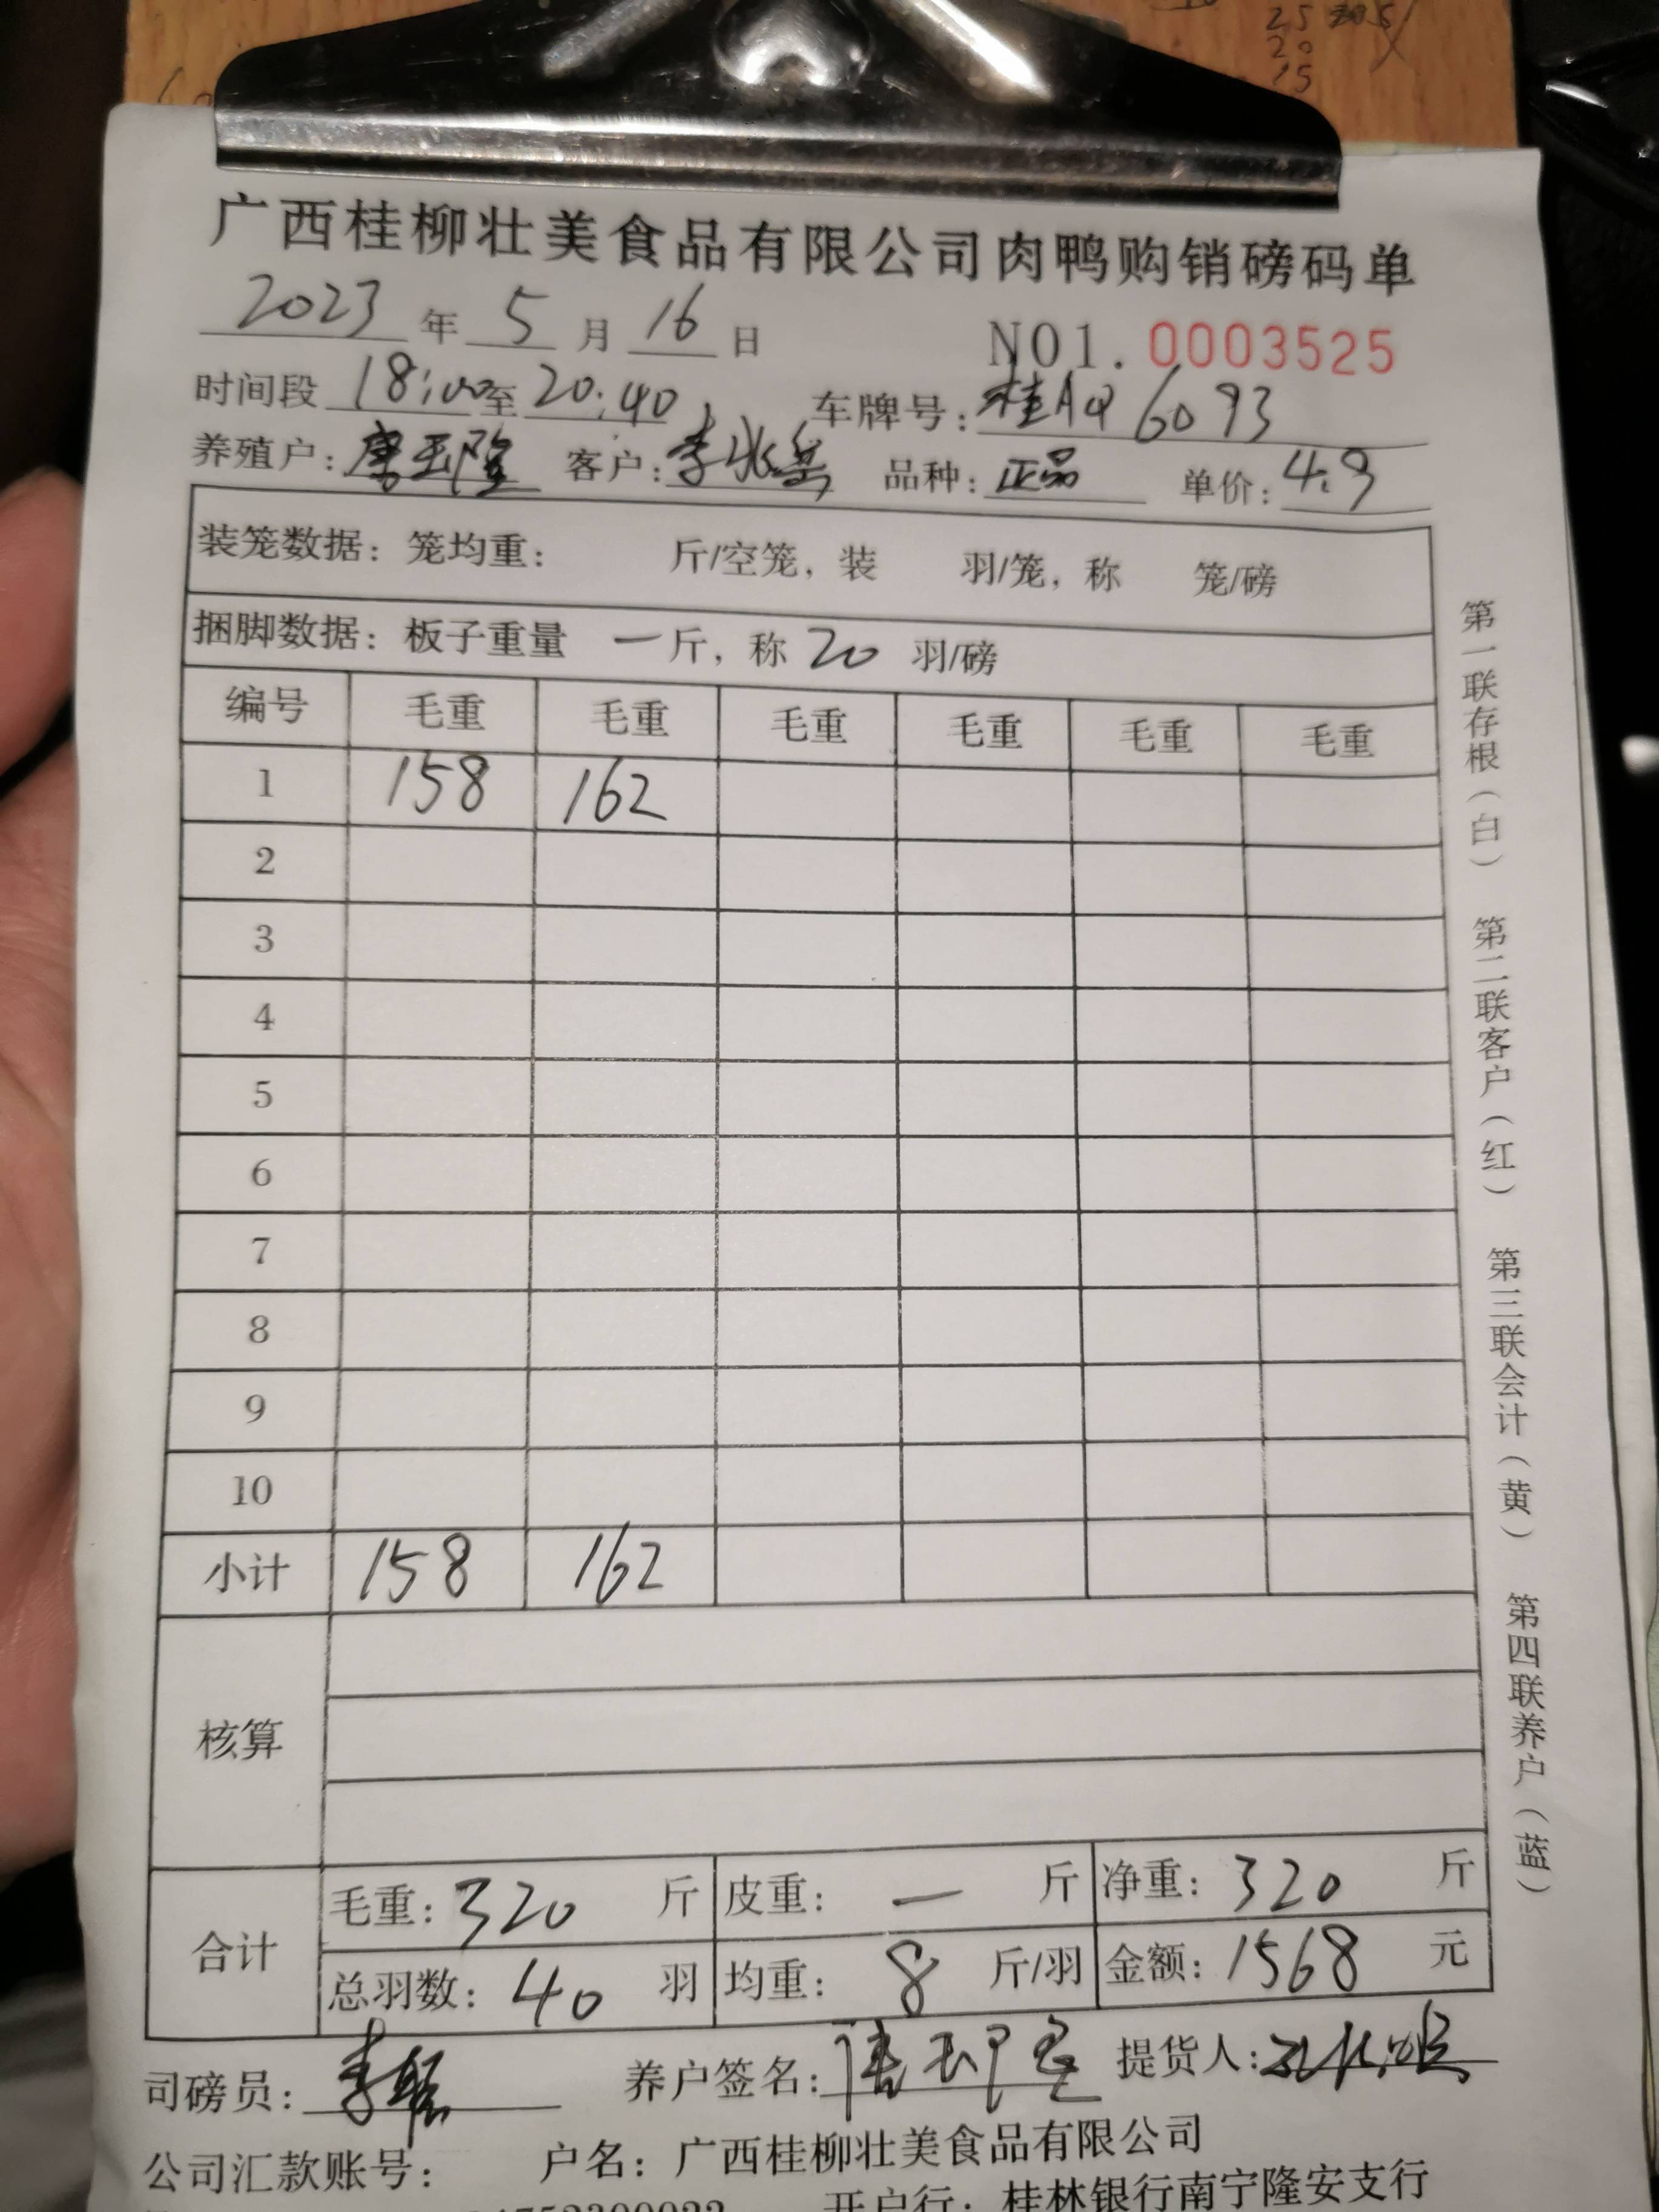 25
20
15
广西桂柳壮美食品有限公司肉鸭购销磅码单
2023 年 5 月 16 日 NO1. 0003525
时间段 18:00 至 20:40 车牌号: 桂A 6093
养殖户: 唐玉隆 客户: 李 品种: 正品 单价: 4.9
装笼数据: 笼均重: 斤/空笼, 装 羽/笼, 称 笼/磅
捆脚数据: 板子重量 一 斤, 称 20 羽/磅
编号 毛重 毛重 毛重 毛重 毛重 毛重
1 158 162
2
3
4
5
6
7
8
9
10
小计 158 162
核算
合计 毛重: 320 斤 皮重: — 斤 净重: 320 斤
总羽数: 40 羽 均重: 8 斤/羽 金额: 1568 元
司磅员: 李 养户签名: 唐玉隆 提货人:
公司汇款账号: 户名: 广西桂柳壮美食品有限公司
开户行: 桂林银行南宁隆安支行
第一联存根(白) 第二联客户(红) 第三联会计(黄) 第四联养户(蓝)